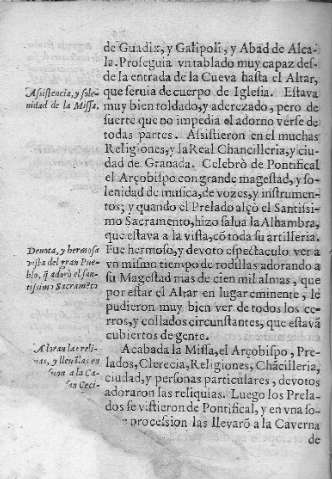 de Guadix, y Galipoli, y Abad de Alca-
la. Proseguia vn tablado muy capaz des-
de la entrada de la Cueva hasta el Altar,
Asistencia, y sole-
nidad de la Missa.
que seruia de cuerpo de Iglesia. Estava
muy bien toldado, y aderezado, pero de
suerte que no impedia el adorno verse de
todas partes. Asistieron en el muchas
Religiones, y la Real Chancilleria, y ciu-
dad de Granada. Celebrò de Pontifical
el Arçobispo con grande magestad, y so-
lenidad de musica, de vozes, y instrumen-
tos; y quando el Prelado alçò el Santissi-
mo Sacramento, hizo salua la Alhambra,
que estava a la vista, cõ toda su artilleria.
Deuota, y hermosa
vista del gran Pue-
blo, q̃ adorò el san-
tissimo Sacrameto
Fue hermoso, y devoto espectaculo ver a
vn mismo tiempo de rodillas adorando a
su Magestad mas de cien mil almas, que
por estar el Altar en lugar eminente, le
pudieron muy bien ver de todos los ce-
rros, y collados circunstantes, que estavã
cubiertos de gente.
las reli-
quias, y
a la Ca-
Acabada la Missa, el Arçobispo, Pre-
lados, Clerecia, Religiones, Chãcilleria,
ciudad, y personas particulares, devotos
adoraron las reliquias. Luego los Prela-
dos se vistieron de Pontifical, y en vna so-
procession las llevarõ a la Caverna
de